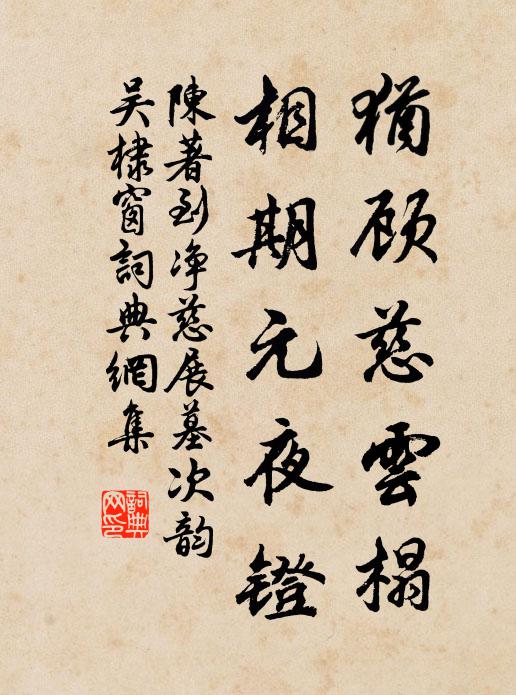 猶顧慈雲榻
相期元夜鐙
陳著到净慈展墓次韵
吴棣窗詞典網集
詞典网印